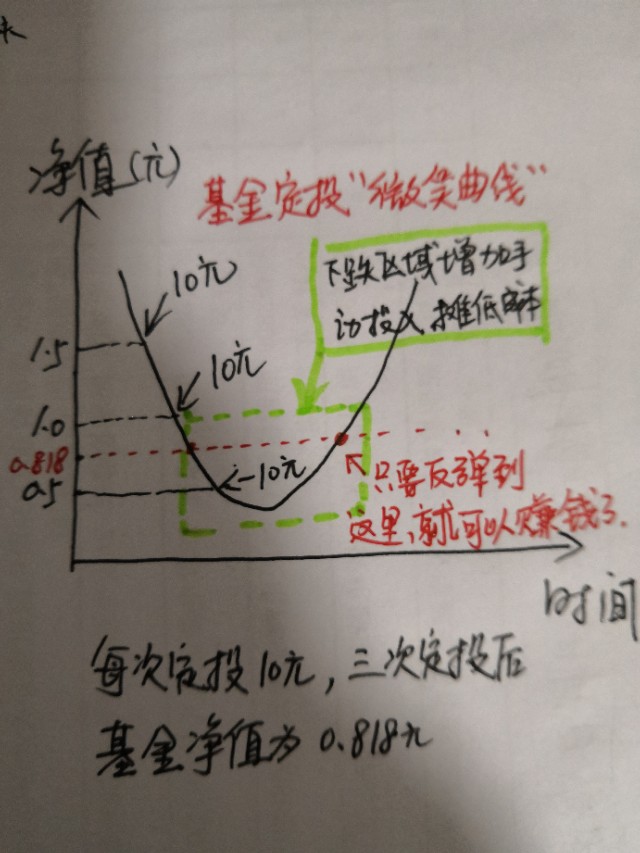 净值(元)
基金定投"微笑曲线"
下跌区域增加手
动投入,摊低成本
10元
10元
1.5
1.0
0.818
0.5
10元
只要反弹到
这里,就可以赚钱了.
时间
每次定投10元,三次定投后
基金净值为0.818元